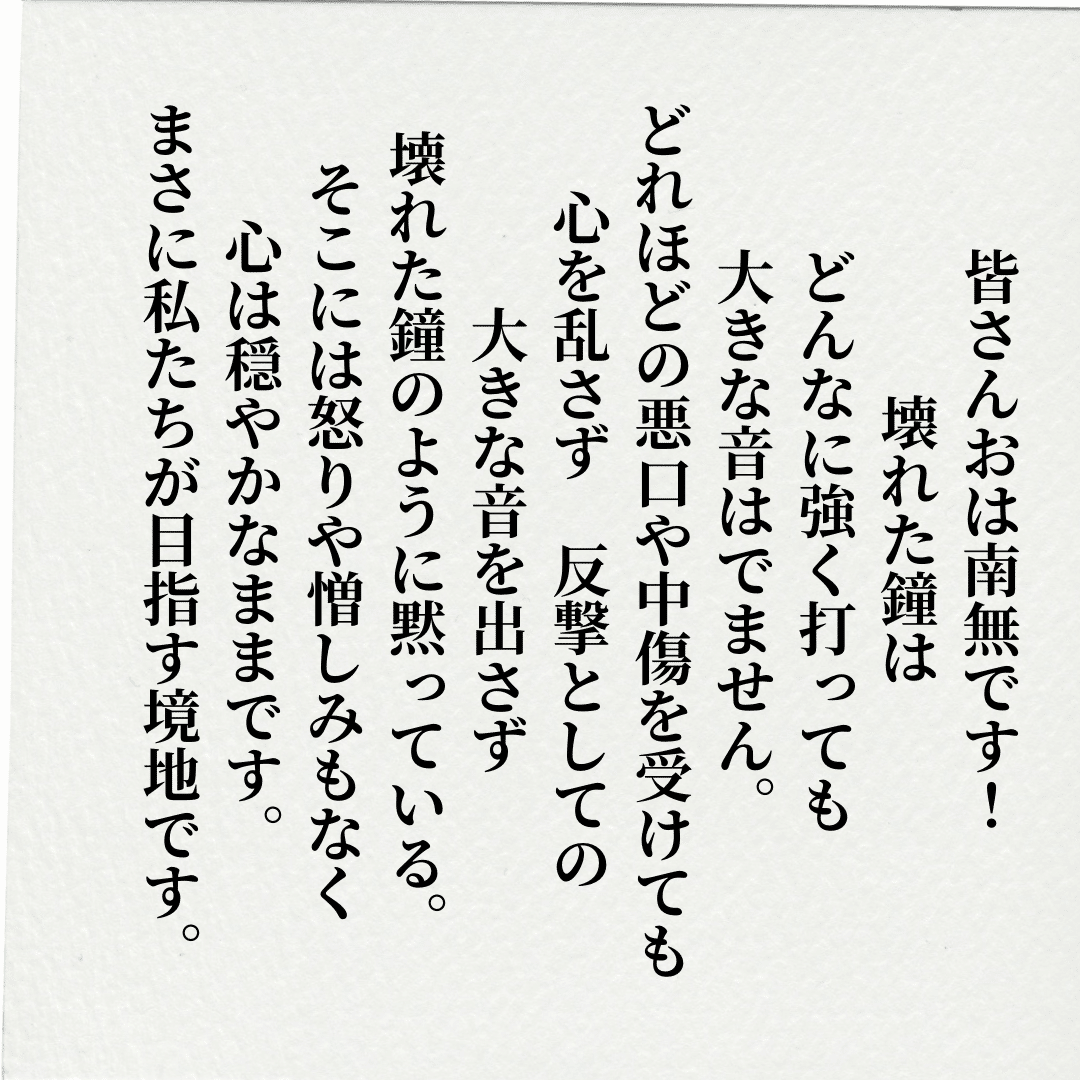 皆さんおは南無です！
壊れた鐘は
どんなに強く打っても
大きな音はでません。
どれほどの悪口や中傷を受けても
心を乱さず　反撃としての
大きな音を出さず
壊れた鐘のように黙っている。
そこには怒りや憎しみもなく
心は穏やかなままです。
まさに私たちが目指す境地です。